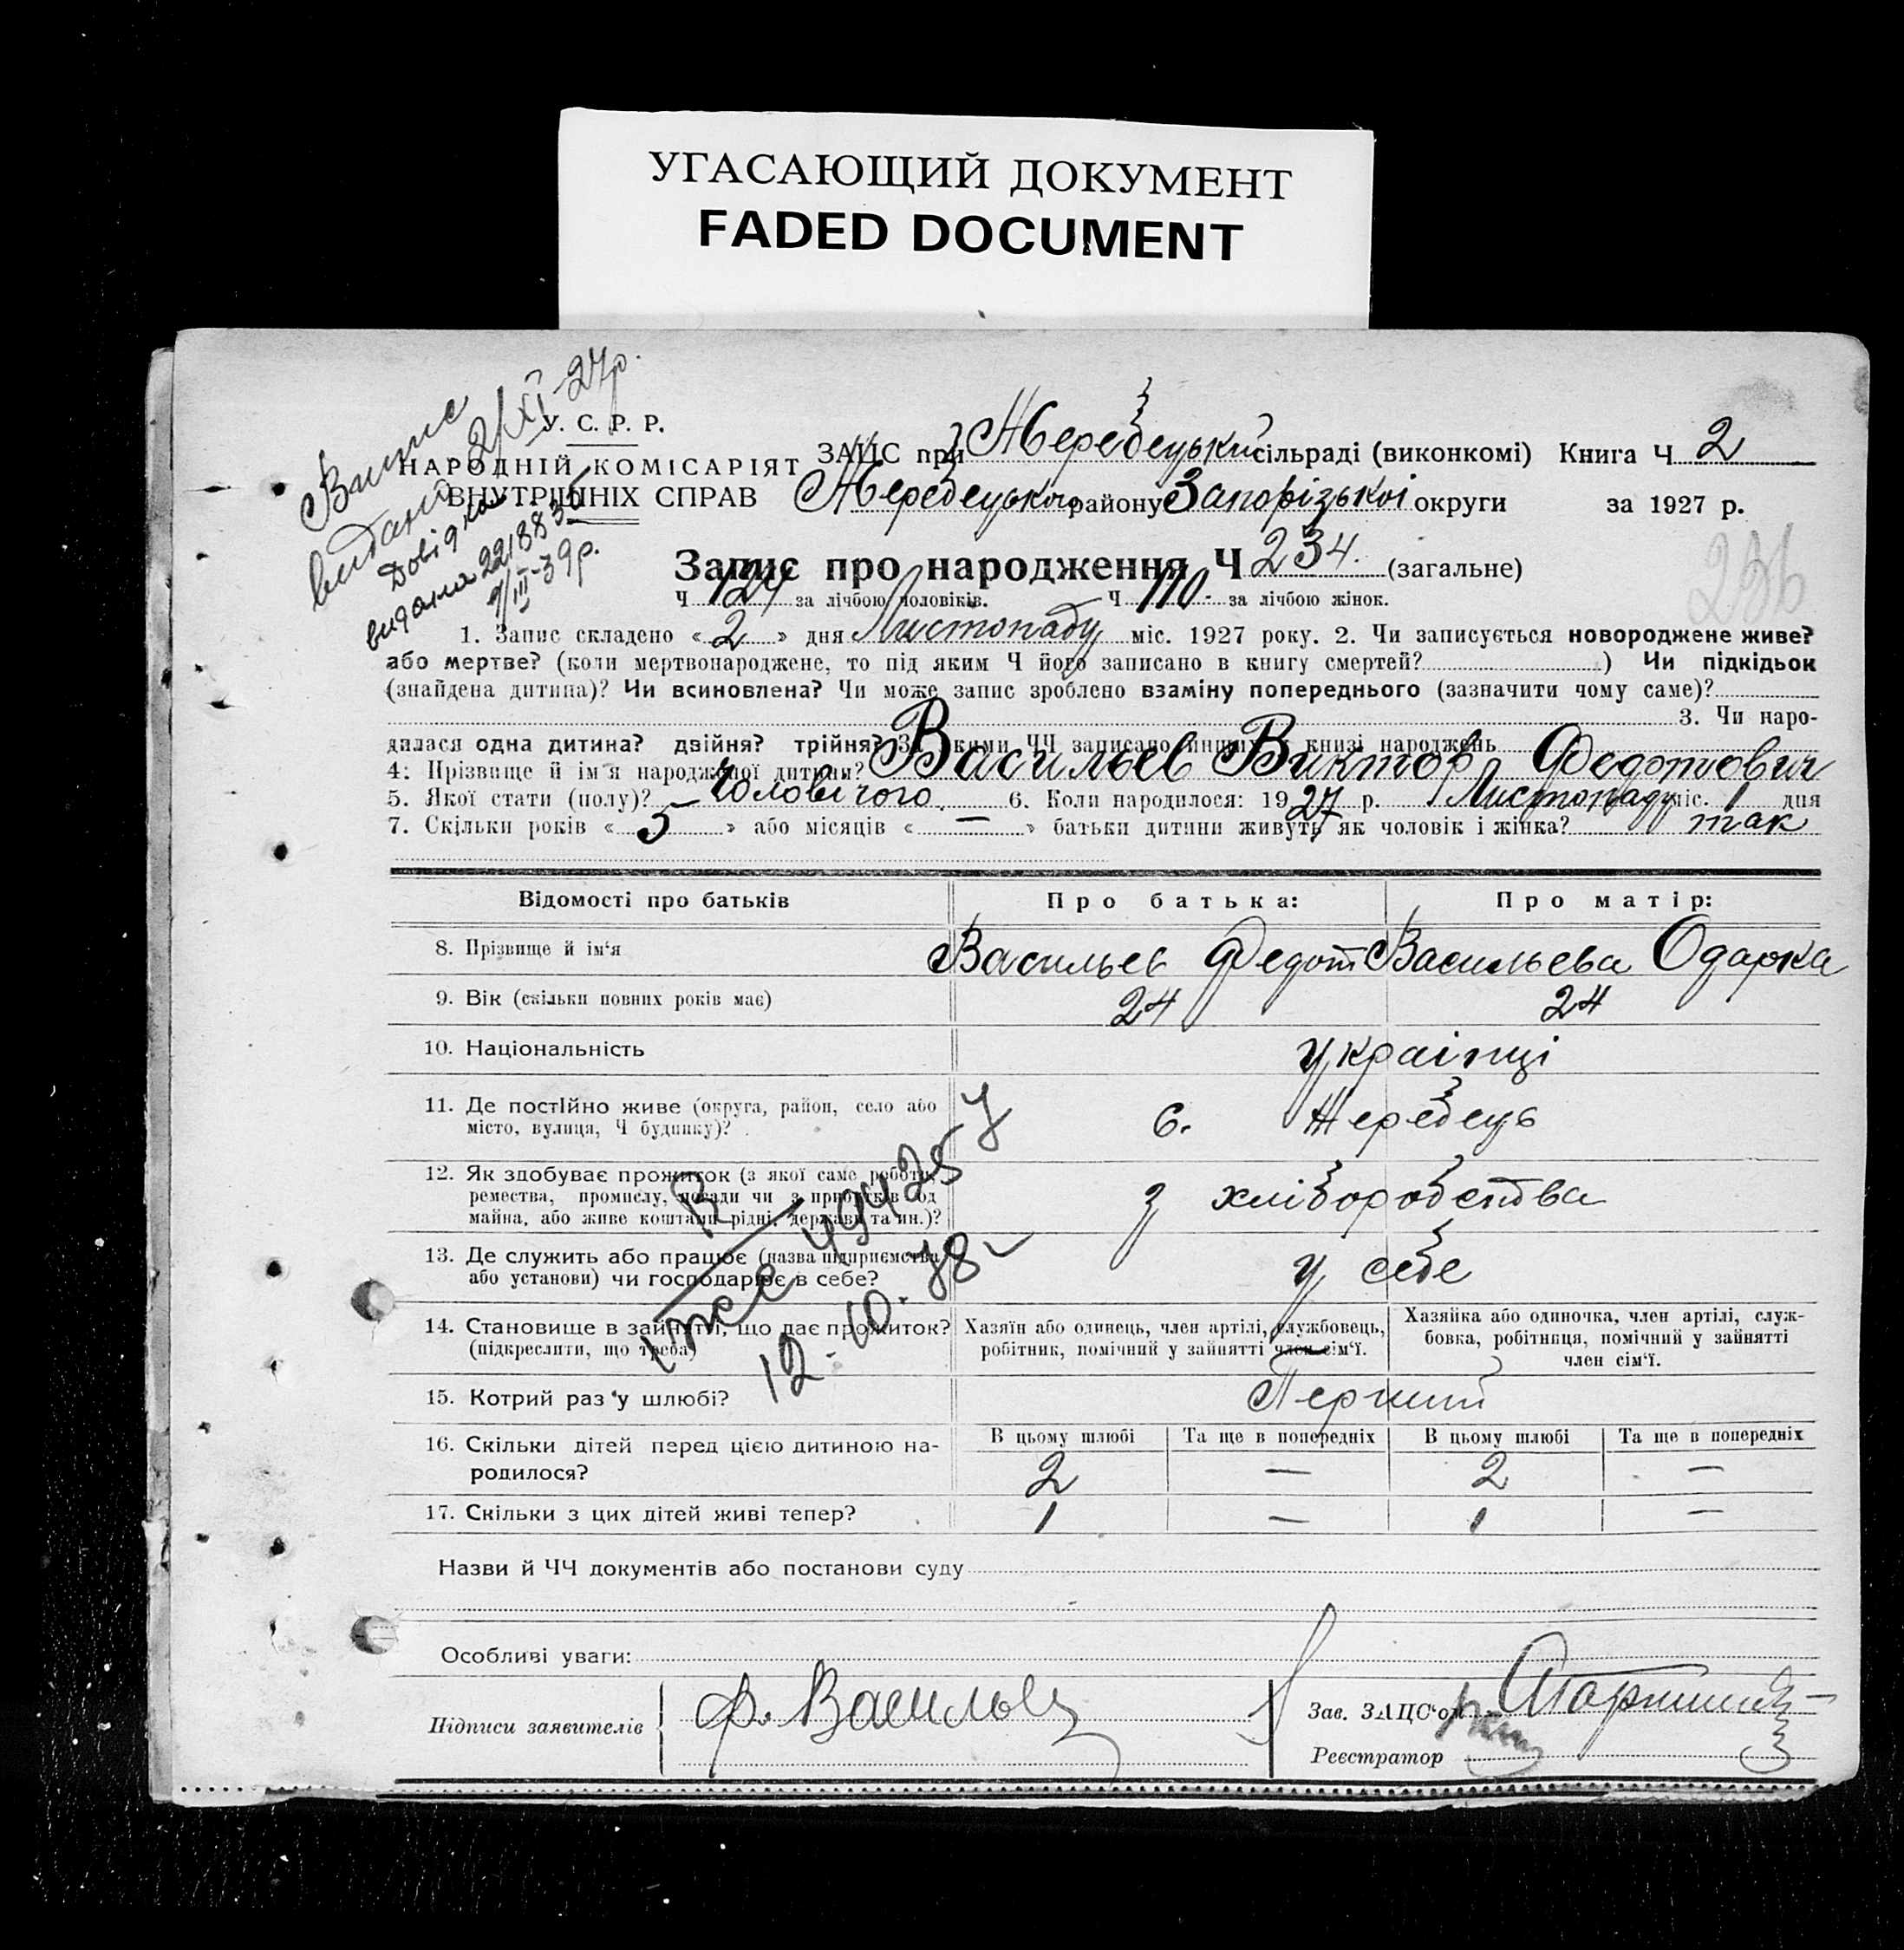 УГАСАЮЩИЙ ДОКУМЕНТ
FADED DOCUMENT
Випис
видано 2/XI-27р.
Довідка
видана
III-39р.
У. С. Р. Р.
НАРОДНІЙ КОМІСАРІЯТ
ВНУТРІШНІХ СПРАВ
ЗАЦС при Жеребецький сільраді (виконкомі) Книга Ч 2
Жеребецького району Запорізької округи за 1927 р.
Запис про народження Ч 234. (загальне)
236
Ч 124 за лічбою чоловіків. Ч 110. за лічбою жінок.
1. Запис складено « 2 » дня Листопаду міс. 1927 року. 2. Чи записується новороджене живе?
або мертве? (коли мертвонароджене, то під яким Ч його записано в книгу смертей? ) Чи підкідьок
(знайдена дитина)? Чи всиновлена? Чи може запис зроблено взаміну попереднього (зазначити чому саме)?
3. Чи наро-
дилася одна дитина? двійня? трійня? За якими ЧЧ записано инших в книзі народжень
4. Прізвище й ім'я народженої дитини? Васильев Виктор Федотович
5. Якої стати (полу)? Чоловічого. 6. Коли народилося: 1927 р. Листопаду міс. 1 дня
7. Скільки років « 5 » або місяців « — » батьки дитини живуть як чоловік і жінка? так
Відомості про батьків Про батька: Про матір:
8. Прізвище й ім'я Васильев Федот Васильева Одарка
9. Вік (скільки повних років має) 24 24
10. Національність українці
11. Де постійно живе (округа, район, село або
місто, вулиця, Ч будинку)? с. Жеребець
12. Як здобуває прожиток (з якої саме роботи,
ремества, промислу, посади чи з прибутків од
майна, або живе коштами рідні, держави та ин.)? з хліборобства
13. Де служить або працює (назва підприємства
або установи) чи господарює в себе? у себе
12.-10.-88
14. Становище в зайнятті, що дає прожиток?
(підкреслити, що треба)
Хазяїн або одинець, член артілі, службовець,
робітник, помічний у зайнятті член сім'ї.
Хазяйка або одиночка, член артілі, служ-
бовка, робітниця, помічний у зайнятті
член сім'ї.
15. Котрий раз у шлюбі? Перший
16. Скільки дітей перед цією дитиною на-
родилося?
В цьому шлюбі Та ще в попередніх В цьому шлюбі Та ще в попередніх
2 — 2 —
17. Скільки з цих дітей живі тепер? 1 — 1 —
Назви й ЧЧ документів або постанови суду
Особливі уваги:
Підписи заявителів Ф. Васильев
Зав. ЗАЦС'ом
Реєстратор